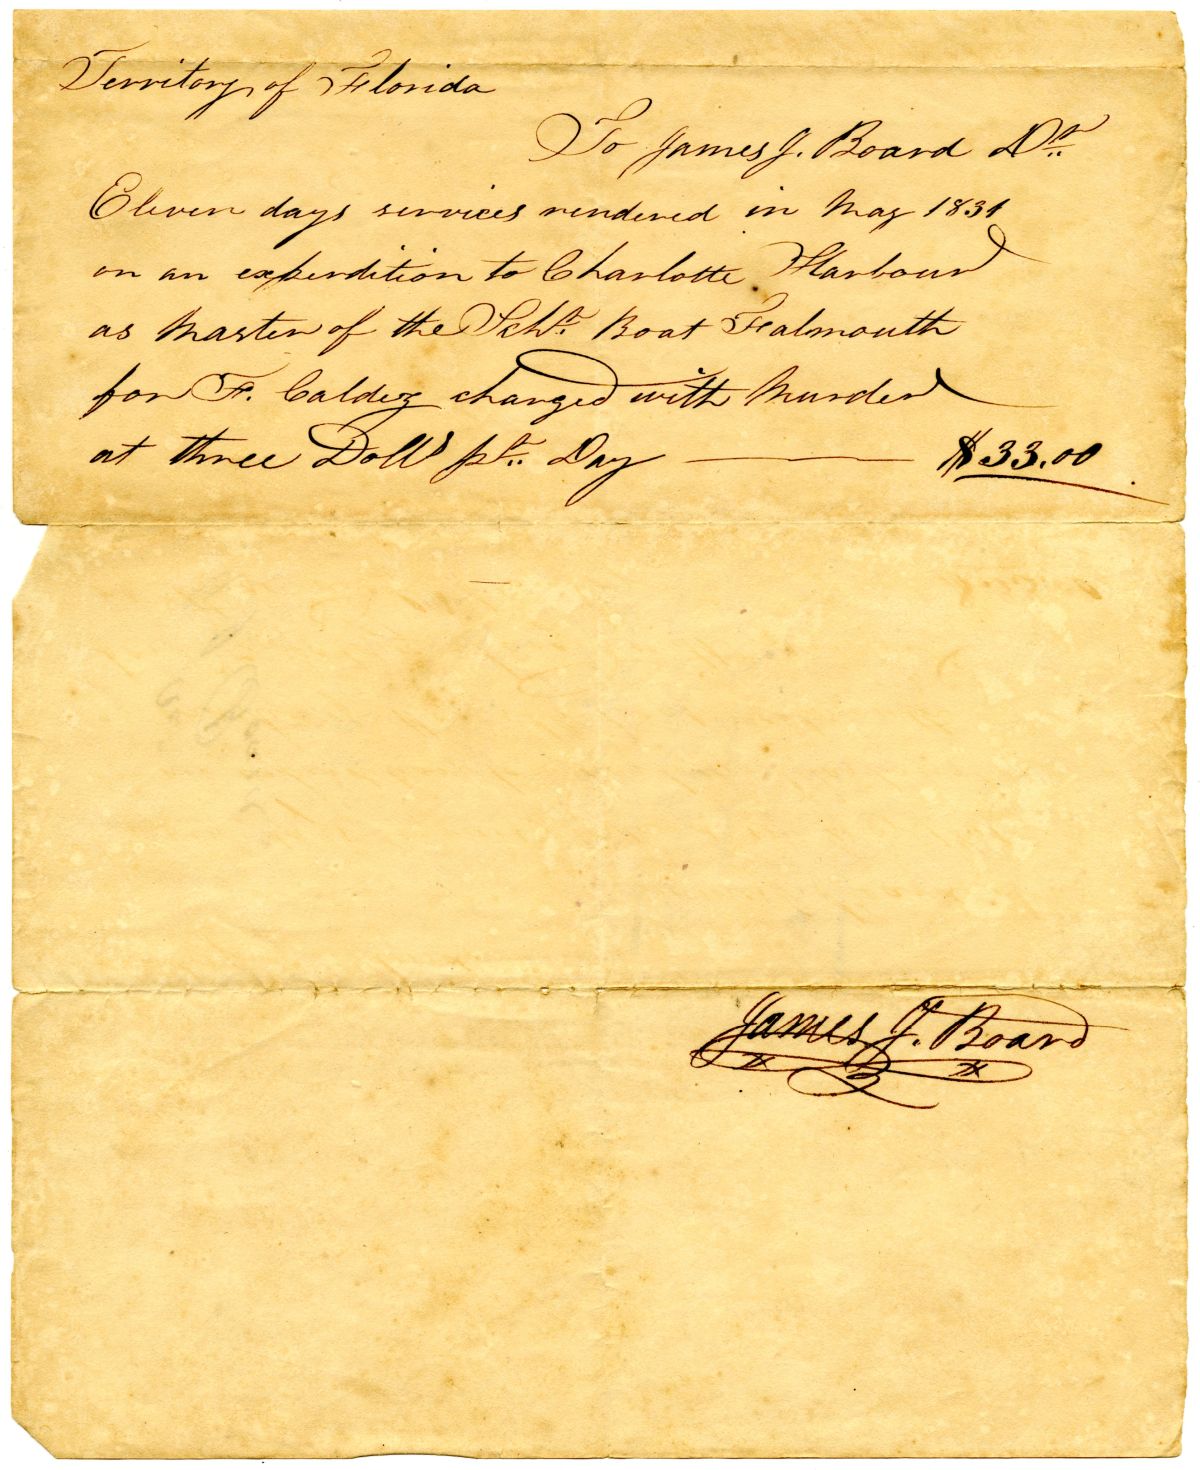 Territory of Florida
To James J. Board Dr.
Eleven days services rendered in May 1831
on an expendition to Charlotte Harbour
as Master of the Schr. Boat Falmouth
for F. Caldez charged with Murder
at three Dolls pr. Day — $33.00
James J. Board